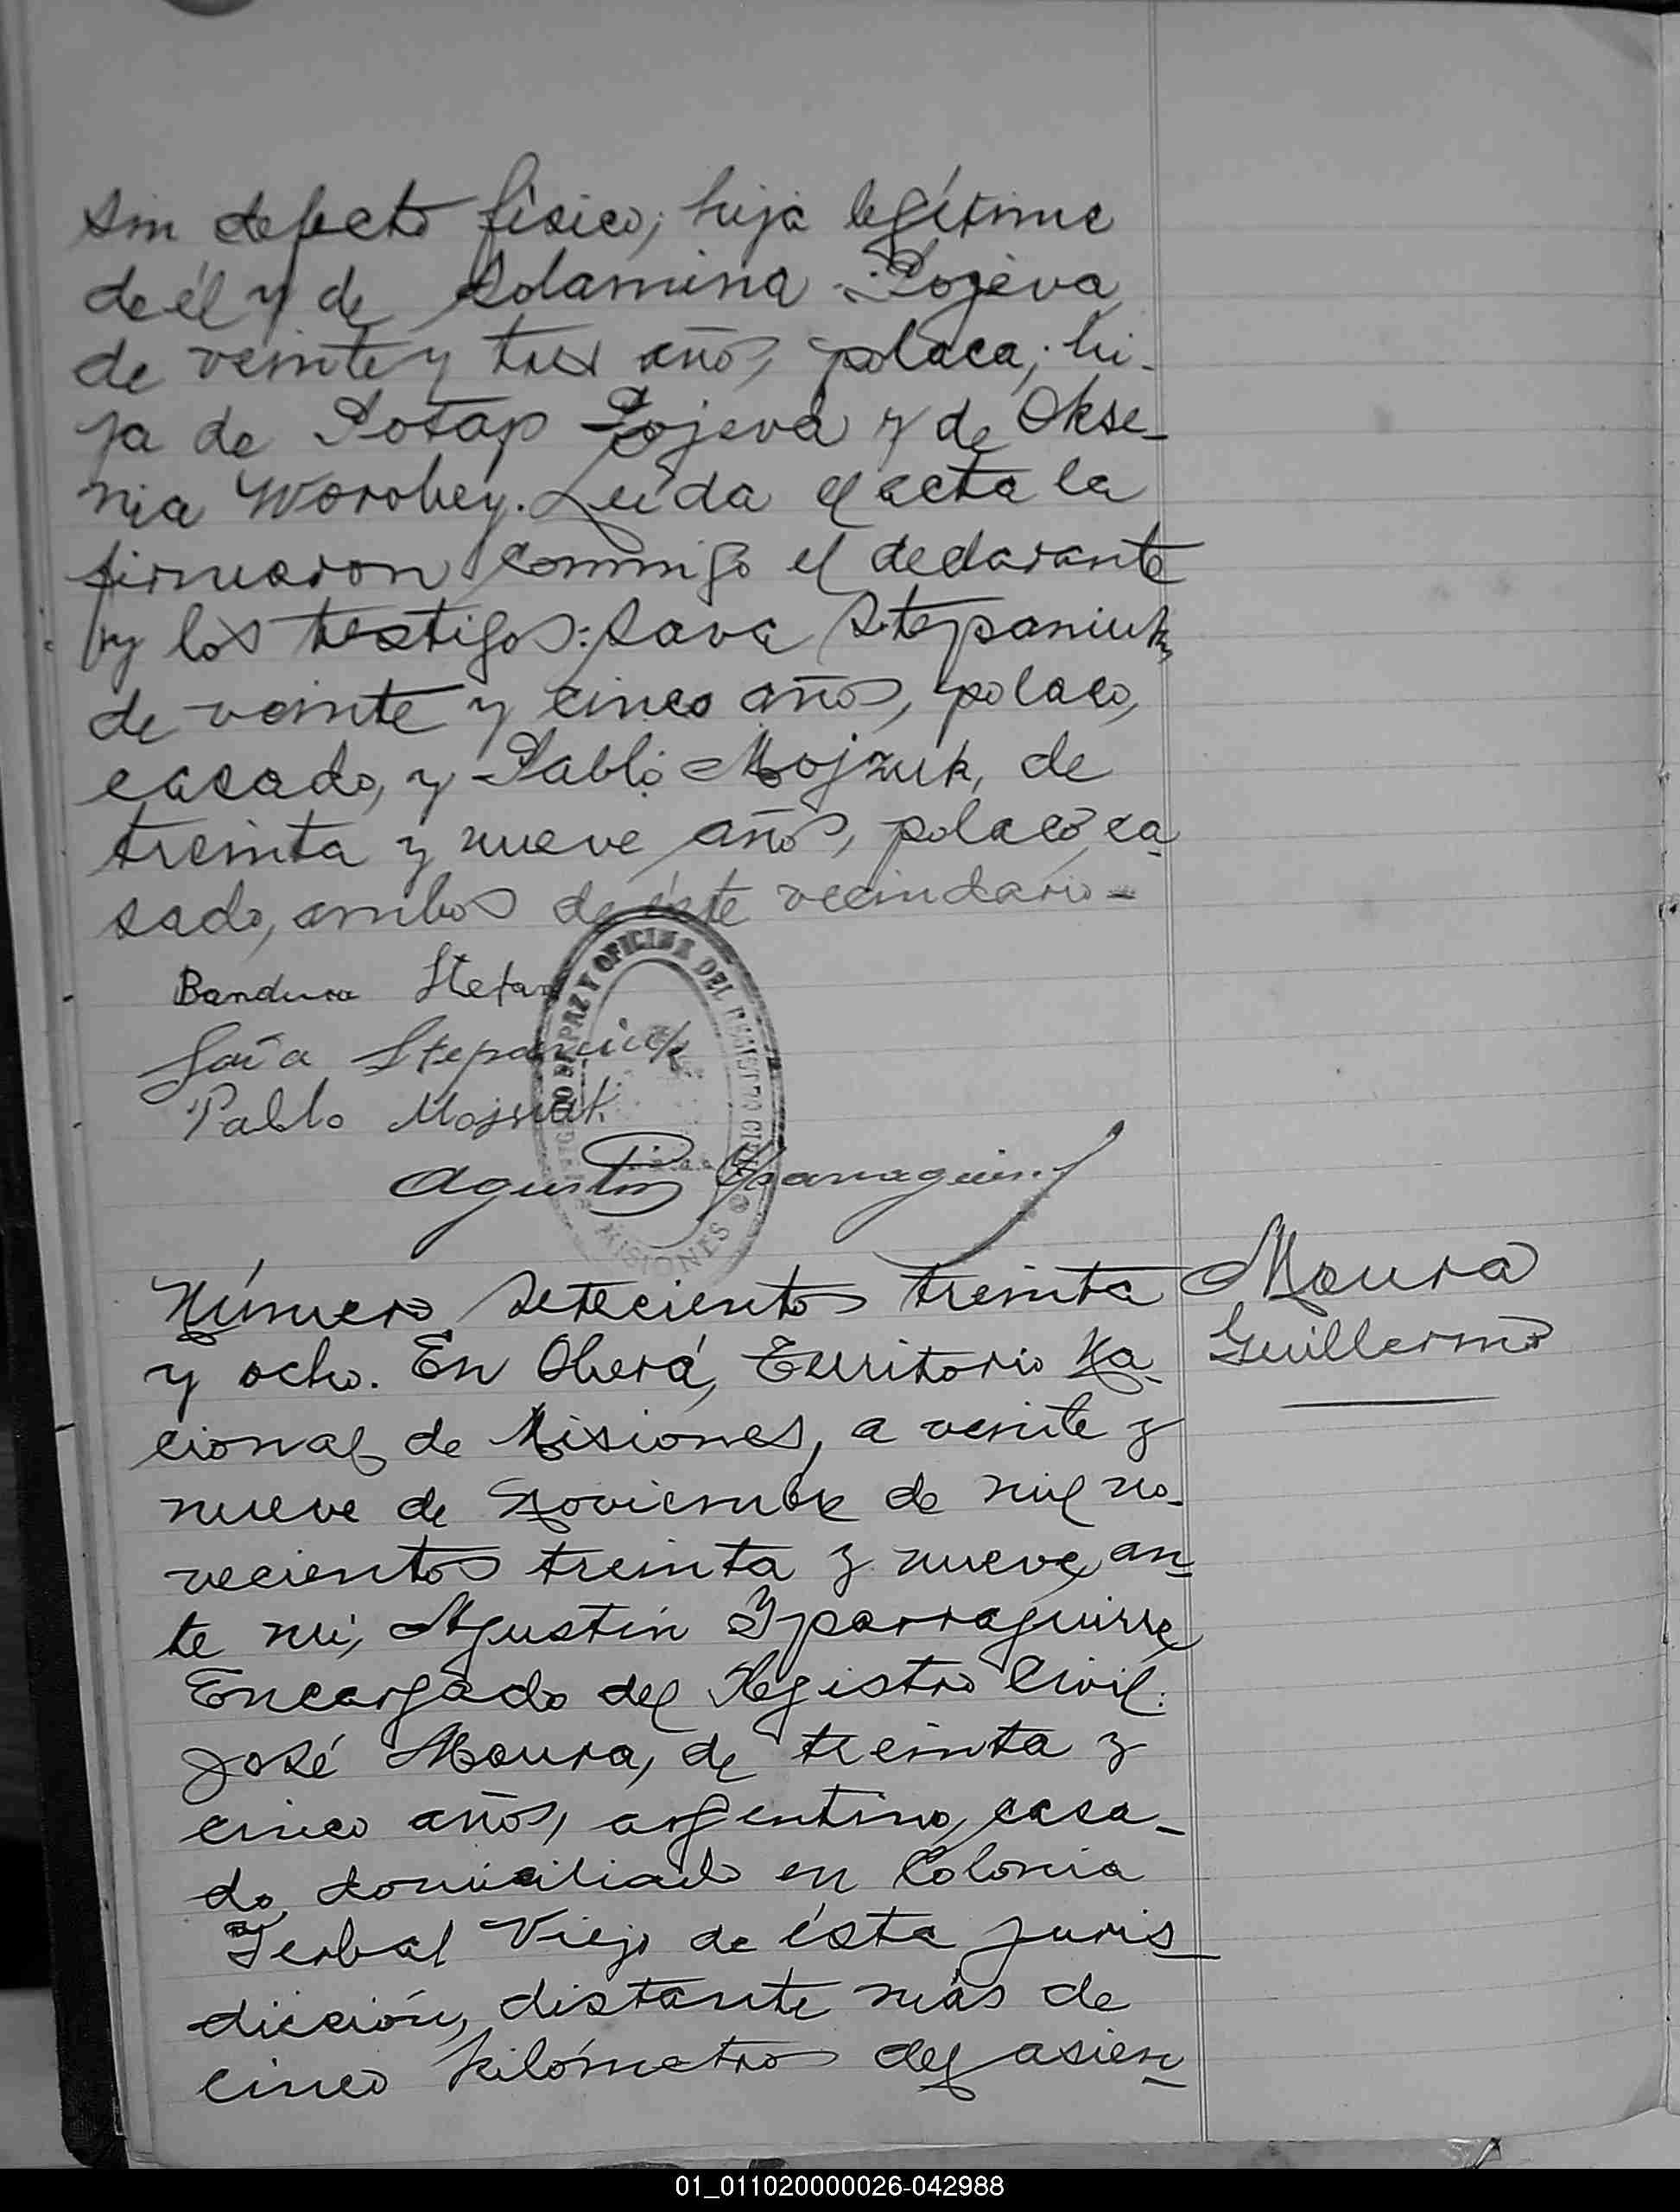 sin defecto físico; hija legítima
de él y de Solamina Pojeva,
de veinte y tres años, polaca; hi-
ja de Potap Pojeva y de Okse-
nia Worobey. Leída el acta la
firmaron conmigo el declarante
y los testigos: Sava Stepaniuk,
de veinte y cinco años, polaco,
casado, y Pablo Mojzuk, de
treinta y nueve años, polaco, ca-
sado, ambos de éste vecindario-
Bandura Stefan
Stepaniuk
Pablo
JUZGADO DE PAZ Y OFICINA DEL REGISTRO CIVIL
MISIONES
Agustín Yparraguirre
Número setecientos treinta
y ocho. En Oberá, Territorio Na-
cional de Misiones, a veinte y
nueve de Noviembre de mil no-
vecientos treinta y nueve, an-
te mí, Agustín Yparraguirre,
Encargado del Registro Civil:
José Moura, de treinta y
cinco años, argentino, casa-
do, domiciliado en Colonia
Yerbal Viejo de ésta juris-
dicción, distante más de
cinco kilómetros del asien-
Moura
Guillermo
01_011020000026-042988